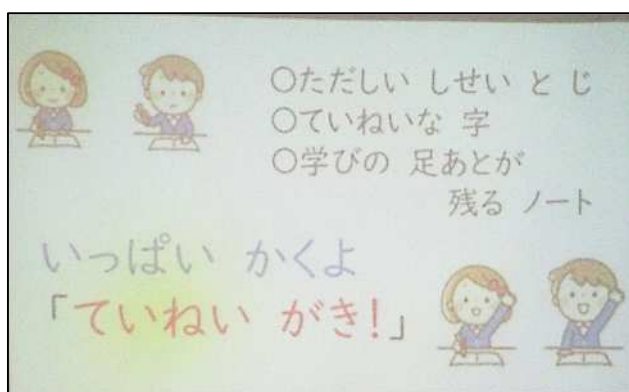 ○ただしい しせい と じ
○ていねいな 字
○学びの 足あとが
残る ノート
いっぱい かくよ
「ていねい がき!」